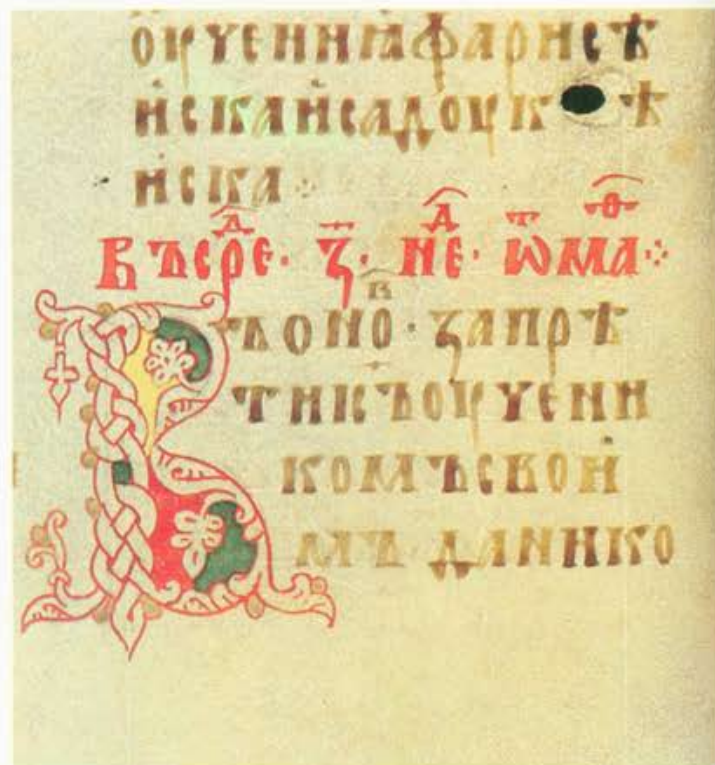 оучениꙗфарисѣ
искаисадоукѣ
иска⁘
Въсрⷣе · ꙁ҃ · неⷣ · ѿ маⷴ⁘
Въоноⷡ · ꙁапрѣ
тиіс҃ъоучени
комъсвои
мъ даннко